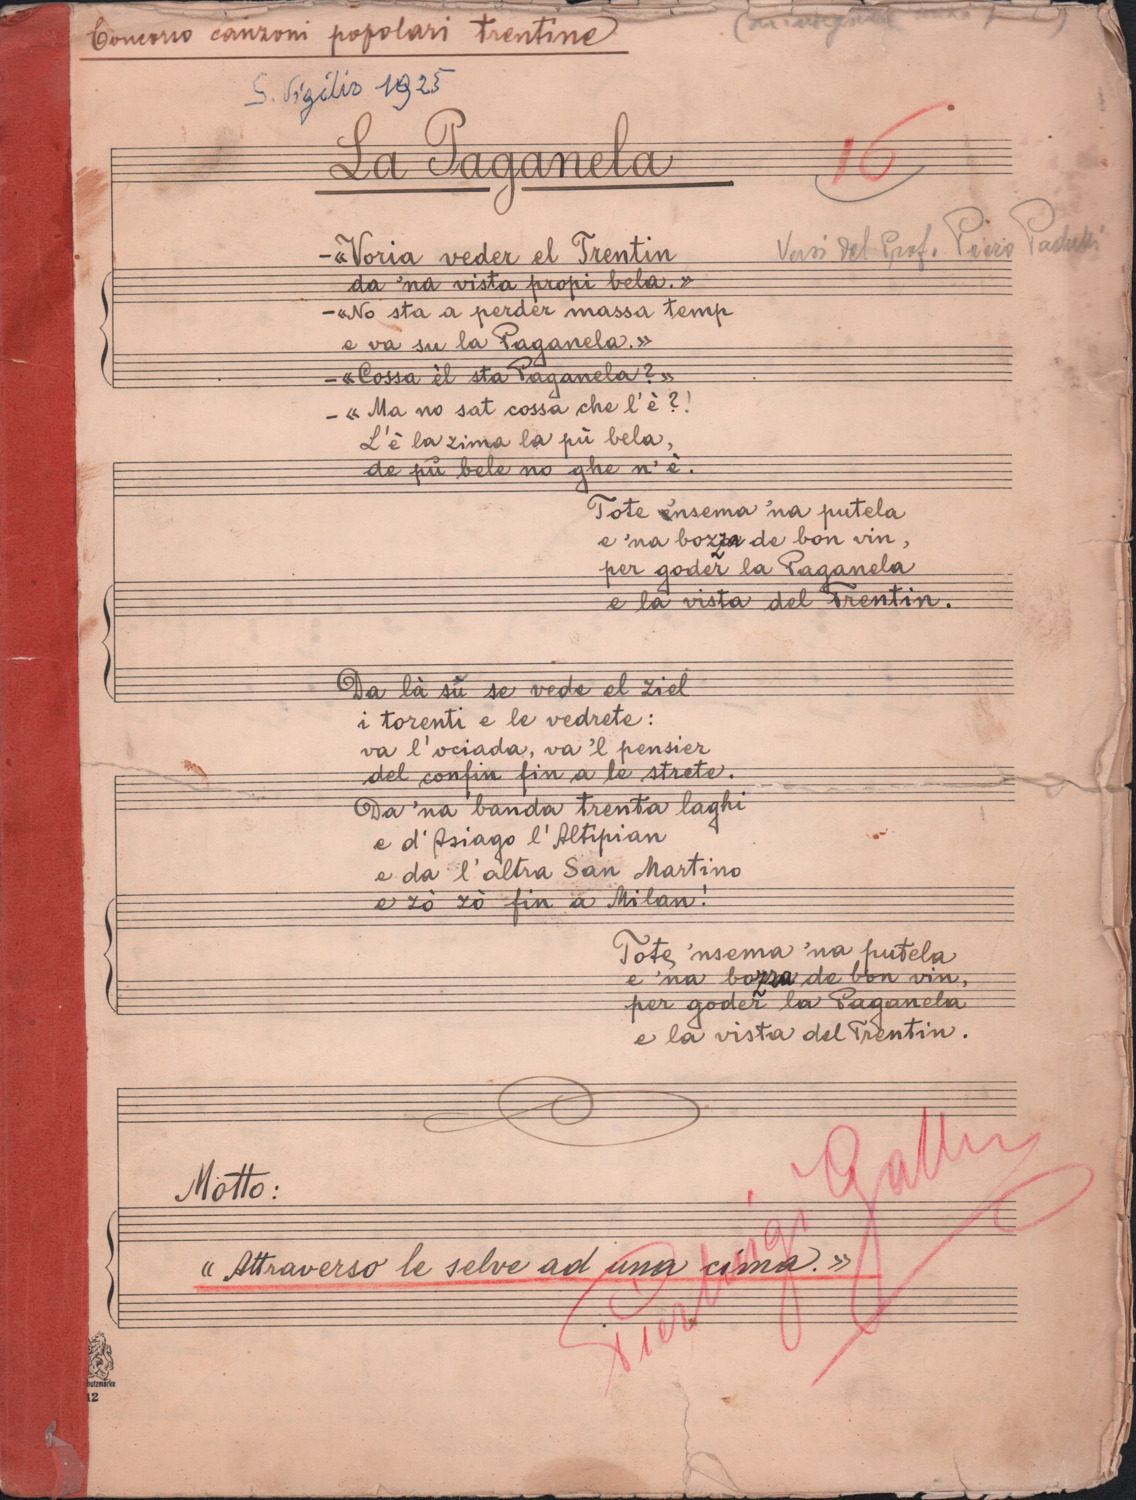 Concorso canzoni popolari trentine
S. Vigilio 1925
La Paganela
16
Versi del Prof. Piero
-«Voria veder el Trentin
da 'na vista propi bela.»
-«No sta a perder massa temp
e va su la Paganela.»
-«Cossa èl sta Paganela?»
-« Ma no sat cossa che l'è?!
L'è la zima la pù bela,
de pù bele no ghe n'è.
Tote 'nsema 'na putela
e 'na bozza de bon vin,
per goder la Paganela
e la vista del Trentin.
Da là sù se vede el ziel
i torenti e le vedrete:
va l'ociada, va 'l pensier
del confin fin a le strete.
Da 'na banda trenta laghi
e d'Asiago l'Altipian
e da l'altra San Martino
e zò zò fin a Milan!
Tote 'nsema 'na putela
e 'na bozza de bon vin,
per goder la Paganela
e la vista del Trentin.
Motto:
« Attraverso le selve ad una cima.»
Pierluigi Galli
12